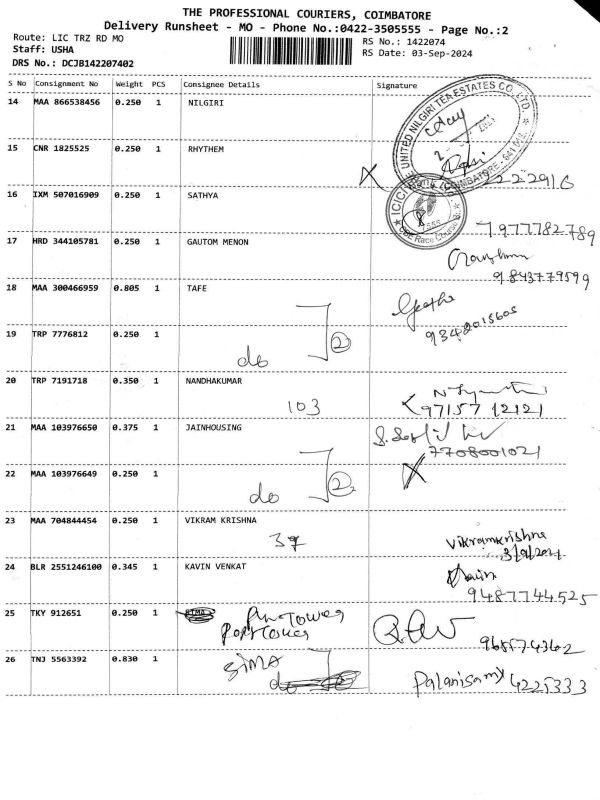 THE PROFESSIONAL COURIERS, COIMBATORE
Delivery Runsheet - MO - Phone No.:0422-3505555 - Page No.:2
Route: LIC TRZ RD MO
RS No.: 1422074
Staff: USHA
RS Date: 03-Sep-2024
DRS No.: DCJB142207402
S No Consignment No Weight PCS Consignee Details Signature
14 MAA 866538456 0.250 1 NILGIRI
THE UNITED NILGIRI TEA ESTATES CO. LTD.
15 CNR 1825525 0.250 1 RHYTHEM
2222916
16 IXM 507016909 0.250 1 SATHYA
7977782789
17 HRD 344105781 0.250 1 GAUTOM MENON
9843779599
18 MAA 300466959 0.805 1 TAFE
Geetha
9342015605
19 TRP 7776812 0.250 1
do 2
20 TRP 7191718 0.350 1 NANDHAKUMAR
103 97157 12121
21 MAA 103976650 0.375 1 JAINHOUSING
7708001021
22 MAA 103976649 0.250 1
do 2
23 MAA 704844454 0.250 1 VIKRAM KRISHNA
37 Vikramkrishna
24 BLR 2551246100 0.345 1 KAVIN VENKAT
9487744525
25 TKY 912651 0.250 1
Tower
26 TNJ 5563392 0.830 1 SIMA
Palanisamy 4225333